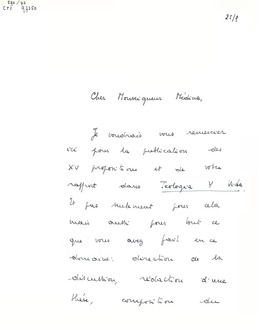 25/9
Cher Monseigneur Médina,
Je voudrais vous remercier
ici pour la publication des
XV propositions et de votre
rapport dans Teologia y Vida.
Et pas seulement pour cela
mais aussi pour tout ce
que vous avez fait en ce
domaine: direction de la
discussion, rédaction d'une
thèse, composition du